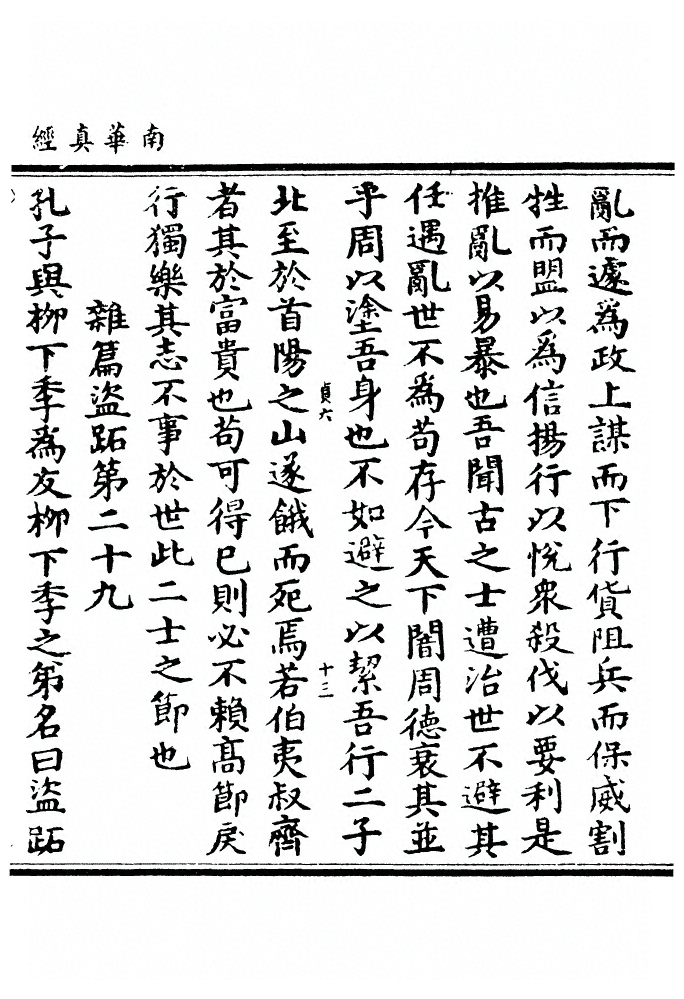 南華真經
亂而遽為政上謀而下行貨阻兵而保威割
牲而盟以為信揚行以悅衆殺伐以要利是
推亂以易暴也吾聞古之士遭治世不避其
任遇亂世不為苟存今天下闇周德衰其並
乎周以塗吾身也不如避之以絜吾行二子
貞六
十三
北至於首陽之山遂餓而死焉若伯夷叔齊
者其於富貴也苟可得已則必不賴高節戾
行獨樂其志不事於世此二士之節也
雜篇盜跖第二十九
孔子與柳下季為友柳下季之第名曰盜跖